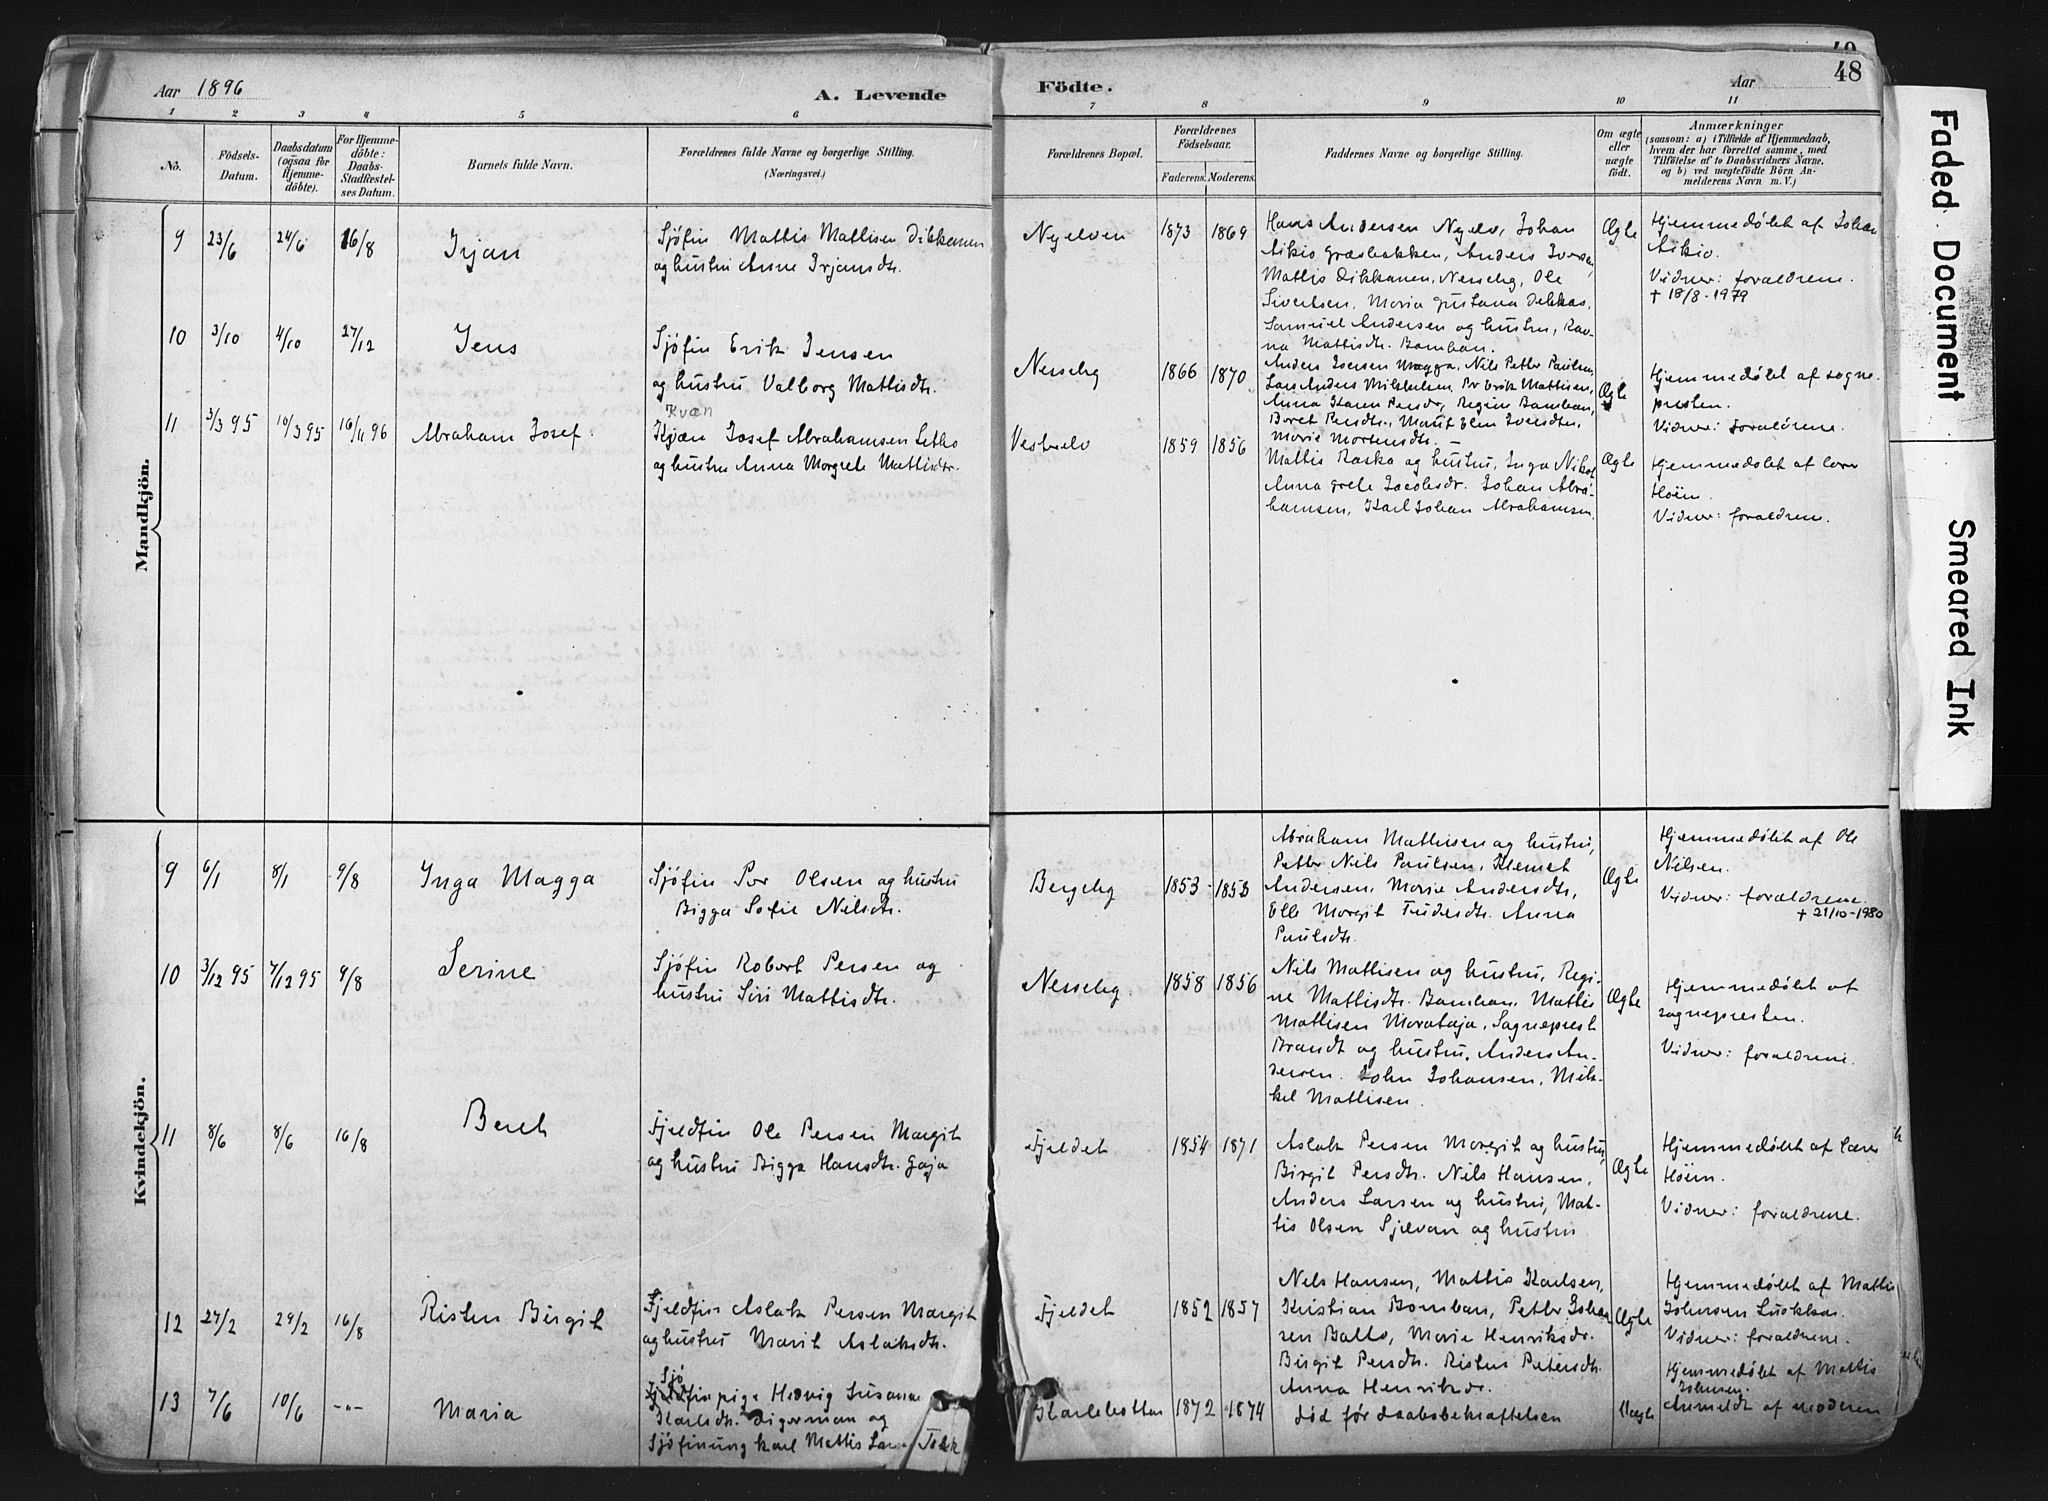 Aar 1896
A. Levende
Födte.
Aar
48
Faded Document
Smeared Ink
1 2 3 4 5 6 7 8 9 10 11
No.
Födsels-Datum.
Daabsdatum (ogsaa for Hjemmedöbte).
For Hjemmedöbte: Daabs-Stadfæstelses Datum.
Barnets fulde Navn.
Forældrenes fulde Navne og borgerlige Stilling.
(Næringsvei.)
Forældrenes Bopæl.
Forældrenes Födselsaar.
Faderens. Moderens.
Faddernes Navne og borgerlige Stilling.
Om ægte eller uægte födt.
Anmærkninger
(saasom: a) i Tilfælde af Hjemmedaab,
hvem der har forrettet samme, med
Tilföielse af to Daabsvidners Navne,
og b) ved uægtefödte Börn Anmelderens Navn m. V.)
Mandkjön.
9 23/6 24/6 16/8 Irjan
Sjøfin Mattis Mattisen Dikkanen
og hustru Anne Irjansdtr.
Nyelven 1873 1869
Hans Andersen Nyelv, Johan
Aikio Græsbakken, Anders Iversen,
Mattis Dikkanen, Nesseby, Ole
Sivertsen, Maria Gustava Dikkas,
Samuel Andersen og hustru, Rav-
na Mattisdtr. Bomban.
Ægte
Hjemmedøbt af Johan
Aikio.
Vidner: forældrene.
† 18/8-1979
10 3/10 4/10 27/12 Jens
Sjøfin Erik Jensen
og hustru Valborg Mattisdtr.
Nesseby 1866 1870
Anders Iversen Magga, Nils Petter Paulsen,
Lars Anders Mikkelsen, Per Erik Mattisen,
Anna Karen Persdr, Regine Bomban,
Boret Persdtr., Marit Elen Iversdtr,
Marie Mortensdtr. –
Ægte
Hjemmedøbt af sogne-
presten.
Vidner: forældrene.
11 3/3 95 10/3 95 16/11 96 Abraham Josef.
Kvæn
Kvæn Josef Abrahamsen Letto
og hustru Anna Margrete Mattisdtr.
Vesterelv 1859 1856
Mattis Raska og hustru, Inga Nikol
Anna Grete Jacobsdr. Johan Abra-
hamsen, Karl Johan Abrahamsen.
Ægte
Hjemmedøbt af lærer
Høiem.
Vidner: forældrene.
Kvindekjön.
9 6/1 8/1 9/8 Inga Magga
Sjøfin Per Olsen og hustru
Bigga Sofie Nilsdtr.
Bergeby 1853 1853
Abraham Mathisen og hustru,
Petter Nils Paulsen, Klemet
Andersen, Marie Andersdtr,
Elle Margit Andersdtr. Anna
Paulsdtr.
Ægte
Hjemmedøbt af Ole
Nilsen.
Vidner: forældrene.
† 21/10-1980
10 3/12 95 7/12 95 9/8 Serine
Sjøfin Robert Persen og
hustru Siri Mattisdtr.
Nesseby. 1858 1856
Nils Mattisen og hustru, Regi-
ne Mattisdtr. Bomban, Mattis
Mattisen Morataja, Sogneprest
Brandt og hustru, Anders An-
dersen. John Johansen, Mik-
kel Mattisen.
Ægte
Hjemmedøbt af
sognepresten.
Vidner: forældrene.
11 8/6 8/6 16/8 Beret
Fjeldfin Ole Persen Margit
og hustru Bigga Hansdtr. Gaja
Fjeldet 1854 1871
Aslak Persen Margit og hustru,
Birgit Persdtr. Nils Hansen,
Anders Larsen og hustru, Mat-
tis Olsen Sjelvan og hustru
Ægte
Hjemmedøbt af lærer
Høiem.
Vidner: forældrene.
12 27/2 29/2 16/8 Risten Birgit
Fjeldfin Aslak Persen Margit
og hustru Marit Aslaksdtr.
Fjeldet 1852 1857
Nels Hansen, Mattis Karlsen,
Kristian Bomban, Petter Johan
sen Ballo, Marie Henriksdr.
Birgit Persdtr. Risten Petersdtr.
Anna Henriksdr.
Ægte
Hjemmedøbt af Mattis
Johnsen Luokkas.
Vidner: forældrene.
13 7/6 10/6 –"– Maria
Sjø
Fjeldfinpige Hedvig Susanne
Karlsdtr. Digerman og
Sjøfinungkarl Mattis Lars
Karlebotten 1872 1874
død før daabsbekræftelsen
Uægte
Hjemmedøbt af Mattis
Johnsen.
Anmeldt af moderen